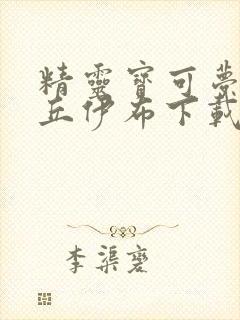 精靈寶可夢
丘伊布下載
李渠褒